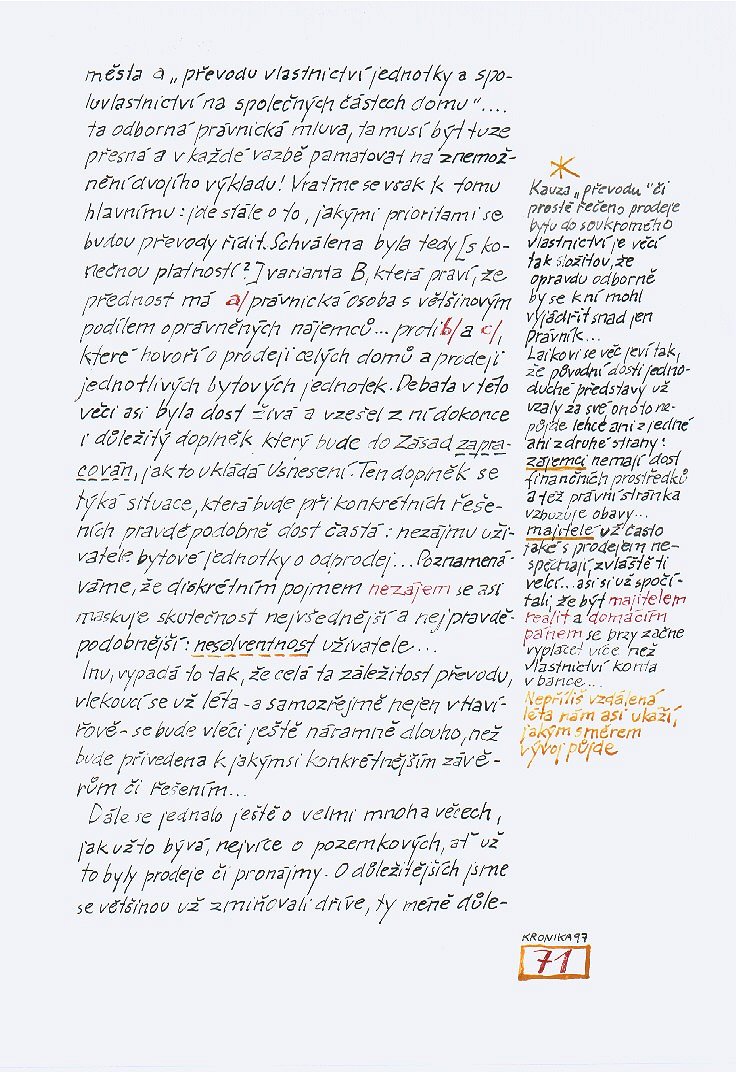 města a „převodu vlastnictví jednotky a spo-
luvlastnictví na společných částech domu"....
ta odborná právnická mluva, ta musí být tuze
přesná a v každé vazbě pamatovat na znemož-
nění dvojího výkladu! Vraťme se však k tomu
hlavnímu: jde stále o to, jakými prioritami se
budou převody řídit. Schválena byla tedy [s ko-
nečnou platností?] varianta B, která praví, že
přednost má a/ právnická osoba s většinovým
podílem oprávněných nájemců... proti b/ a c/,
které hovoří o prodeji celých domů a prodeji
jednotlivých bytových jednotek. Debata v této
věci asi byla dost živá a vzešel z ní dokonce
i důležitý doplněk který bude do Zásad zapra-
cován, jak to ukládá Usnesení. Ten doplněk se
týká situace, která bude při konkrétních řeše-
ních pravděpodobně dost častá: nezájmu uži-
vatele bytové jednotky o odprodej... Poznamená-
váme, že diskrétním pojmem nezájem se asi
maskuje skutečnost nejvšednější a nejpravdě-
podobnější: nesolventnost uživatele...
Inu, vypadá to tak, že celá ta záležitost převodu,
vlekoucí se už léta - a samozřejmě nejen v Haví-
řově - se bude vléci ještě náramně dlouho, než
bude přivedena k jakýmsi konkrétnějším závě-
rům či řešením...
Dále se jednalo ještě o velmi mnoha věcech,
jak už to bývá, nejvíce o pozemkových, ať už
to byly prodeje či pronájmy. O důležitějších jsme
se většinou už zmiňovali dříve, ty méně důle-
*
Kauza „převodu" či
prostě řečeno prodeje
bytu do soukromého
vlastnictví je věcí
tak složitou, že
opravdu odborně
by se k ní mohl
vyjádřit snad jen
právník...
Laikovi se věc jeví tak,
že původní dosti jedno-
duché představy už
vzaly za své, ono to ne-
půjde lehce ani z jedné
ani z druhé strany:
zájemci nemají dost
finančních prostředků
a též právní stránka
vzbuzuje obavy...
majitelé už často
také s prodejem ne-
spěchají, zvláště ti
velcí... asi si už spočí-
tali, že být majitelem
realit a domácím
pánem se brzy začne
vyplácet více než
vlastnictví konta
v bance...
Nepříliš vzdálená
léta nám asi ukáží,
jakým směrem
vývoj půjde
KRONIKA 97
71